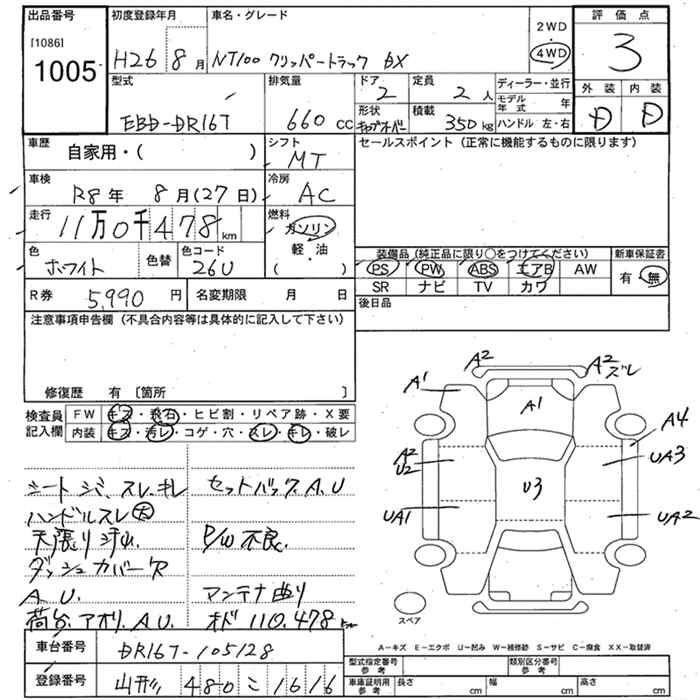 出品番号
[1086]
1005
初度登録年月
H26 8月
車名・グレード
NT100 クリッパートラック DX
2WD
4WD
評価点
3
型式
EBD-DR16T
排気量
660 cc
ドア
2
定員
2人
ディーラー・並行
モデル年式 年
形状
キャブオーバー
積載
350kg
ハンドル 左・右
外装 内装
D D
車歴
自家用・( )
シフト
MT
セールスポイント (正常に機能するものに限ります)
車検
R8年 8月(27日)
冷房
AC
走行
11万0千478km
燃料
ガソリン
軽・油
( )
色
ホワイト
色替
色コード
26U
装備品 (純正品に限り○をつけてください)
新車保証書
PS PW ABS エアB AW
SR ナビ TV カワ
有・無
R券 5,990円
名変期限 月 日
後日品
注意事項申告欄 (不具合内容等は具体的に記入して下さい)
修復歴 有 〔箇所 〕
検査員記入欄
FW キズ・飛石・ヒビ割・リペア跡・X要
内装 キズ・汚レ・コゲ・穴・スレ・キレ・破レ
シート シミ、スレ、キレ
ハンドルスレ大
天張り汚れ
ダッシュカバー欠
A.U.
荷台、アオリ、A.U
セットバック A.U
P/W 不良
アンテナ曲り
オド 110,478km
A2
A2ズレ
A1
A1
A4
A2
U2
UA3
U3
UA1
UA2
スペア
A-キズ E-エクボ U-凹み W-補修跡 S-サビ C-腐食 XX-取替済
車台番号 DR16T-105128
登録番号 山形 480 こ 1616
型式指定番号 参考
類別区分番号 参考
車庫証明用 参考
長さ cm 幅 cm 高さ cm